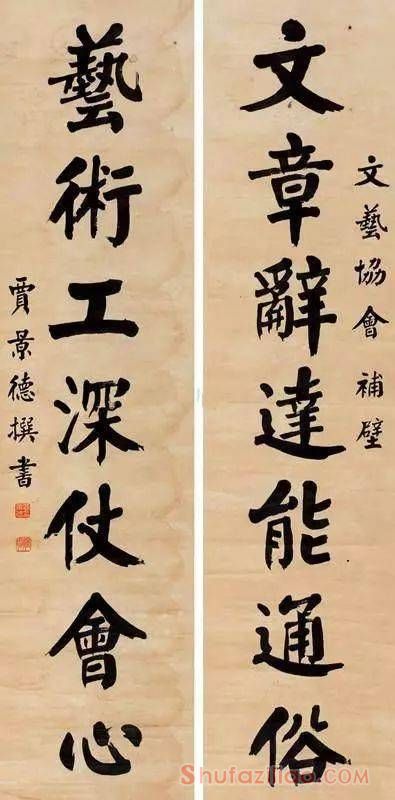 文藝協會補壁
文章辭達能通俗
藝術工深仗會心
賈景德撰書
Shufaziliao.com